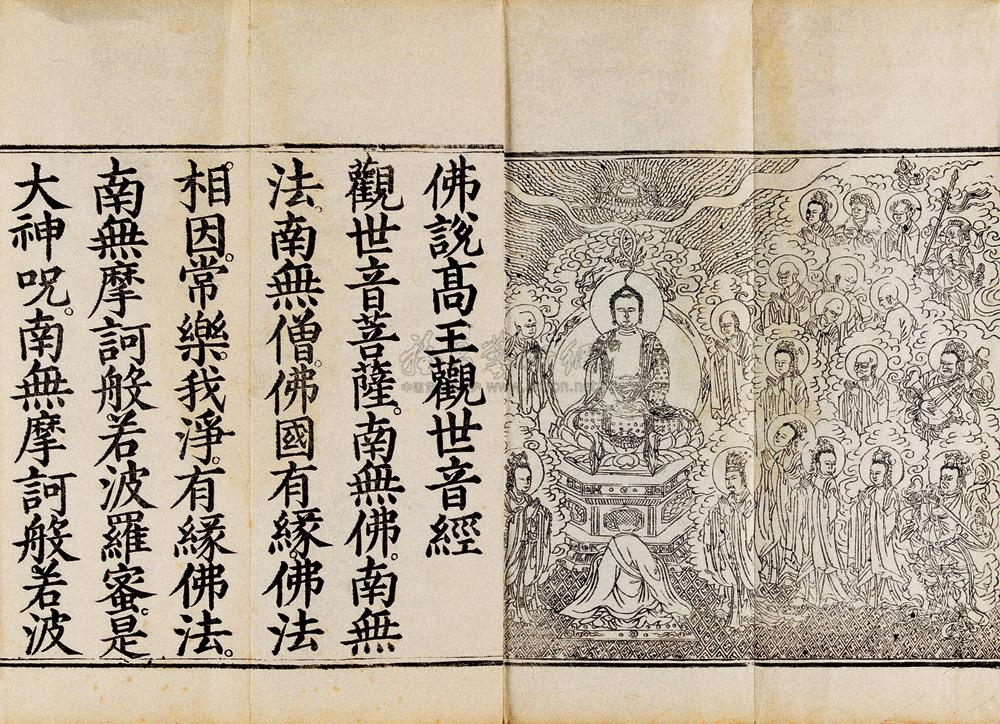 佛說髙王觀世音經
觀世音菩薩。南無佛。南無
法。南無僧。佛國有緣。佛法
相因。常樂我淨。有緣佛法。
南無摩訶般若波羅蜜。是
大神呪。南無摩訶般若波